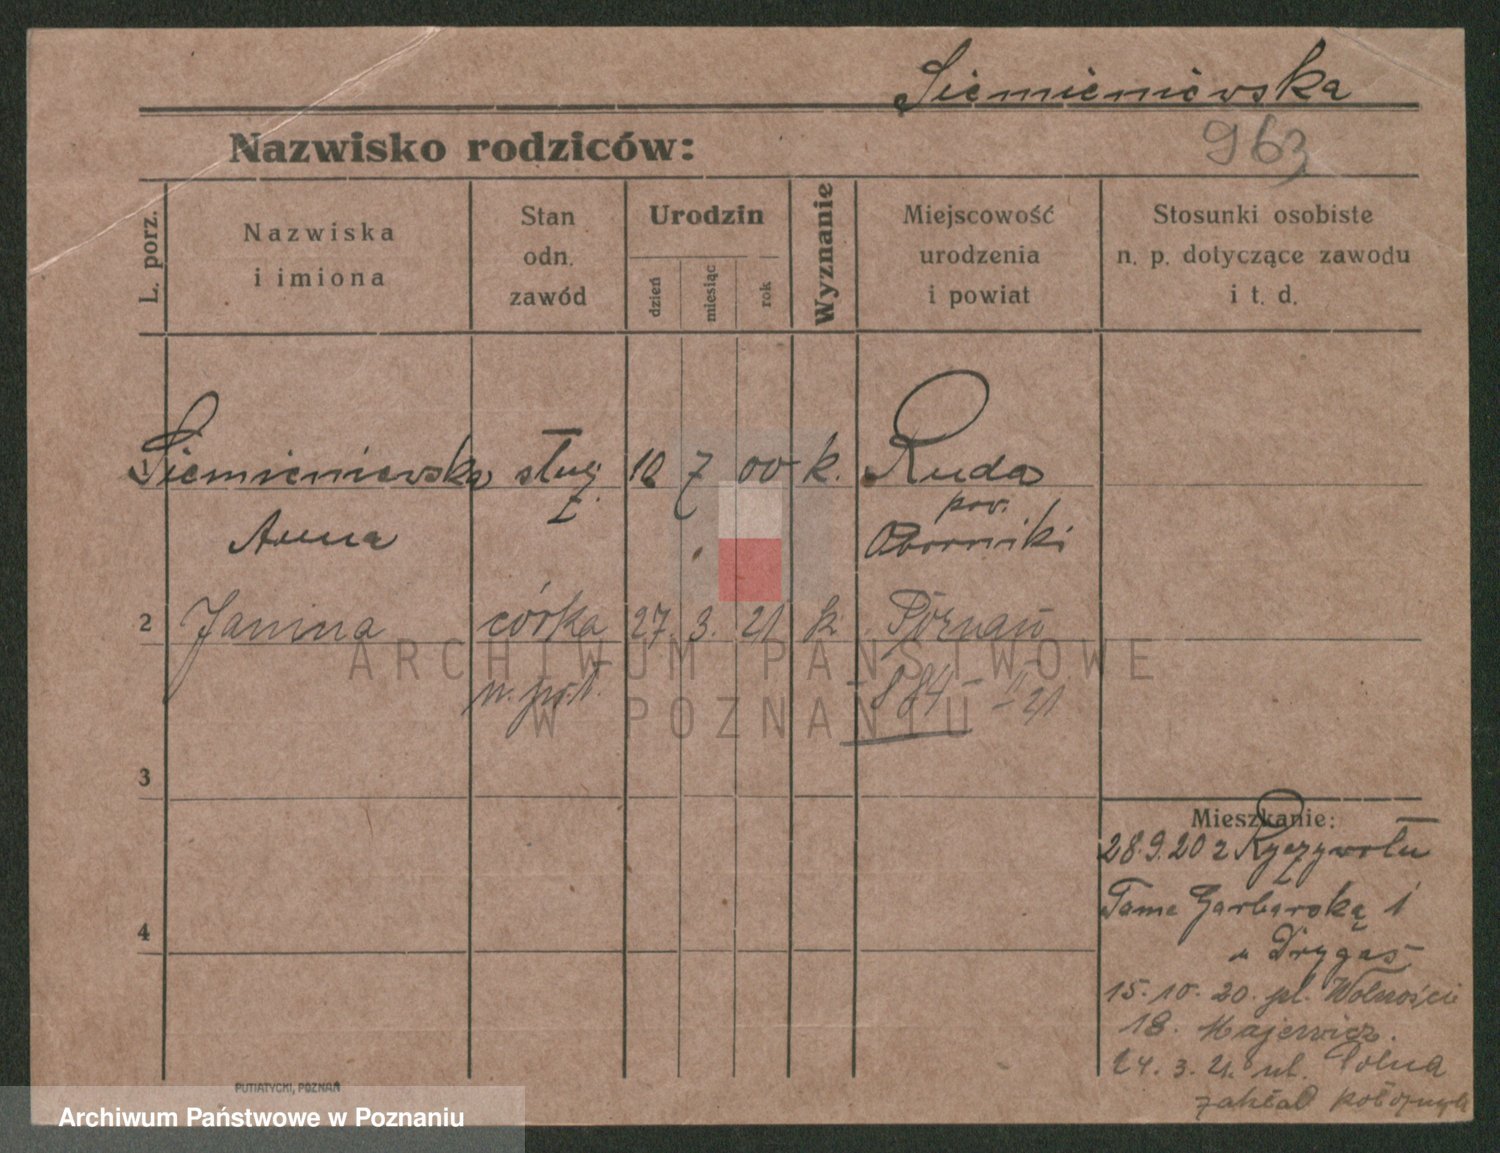 Siemieniewska
Nazwisko rodziców:
963
L. porz.
Nazwiska
i imiona
Stan
odn.
zawód
Urodzin
dzień
miesiąc
rok
Wyznanie
Miejscowość
urodzenia
i powiat
Stosunki osobiste
n. p. dotyczące zawodu
i t. d.
1 Siemieniewska służ 10 7 00 k. Ruda
Anna ż. pow.
Oborniki
2 Janina córka 27 3. 21 k. Poznań
884 - II 21
3
4
Mieszkanie:
28.9.20 z Ryczywołu
Tama Garbarska 1
u Drygas
15.10.20. pl. Wolności
18. Majewicz.
24.3.21. ul. Polna
zakład położnych
ARCHIWUM PAŃSTWOWE
W POZNANIU
PUTIATYCKI, POZNAŃ
Archiwum Państwowe w Poznaniu